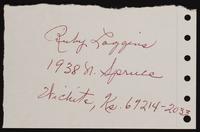 Ruby Loggins
1938 N. Spruce
Wichita, Ks. 67214-2033